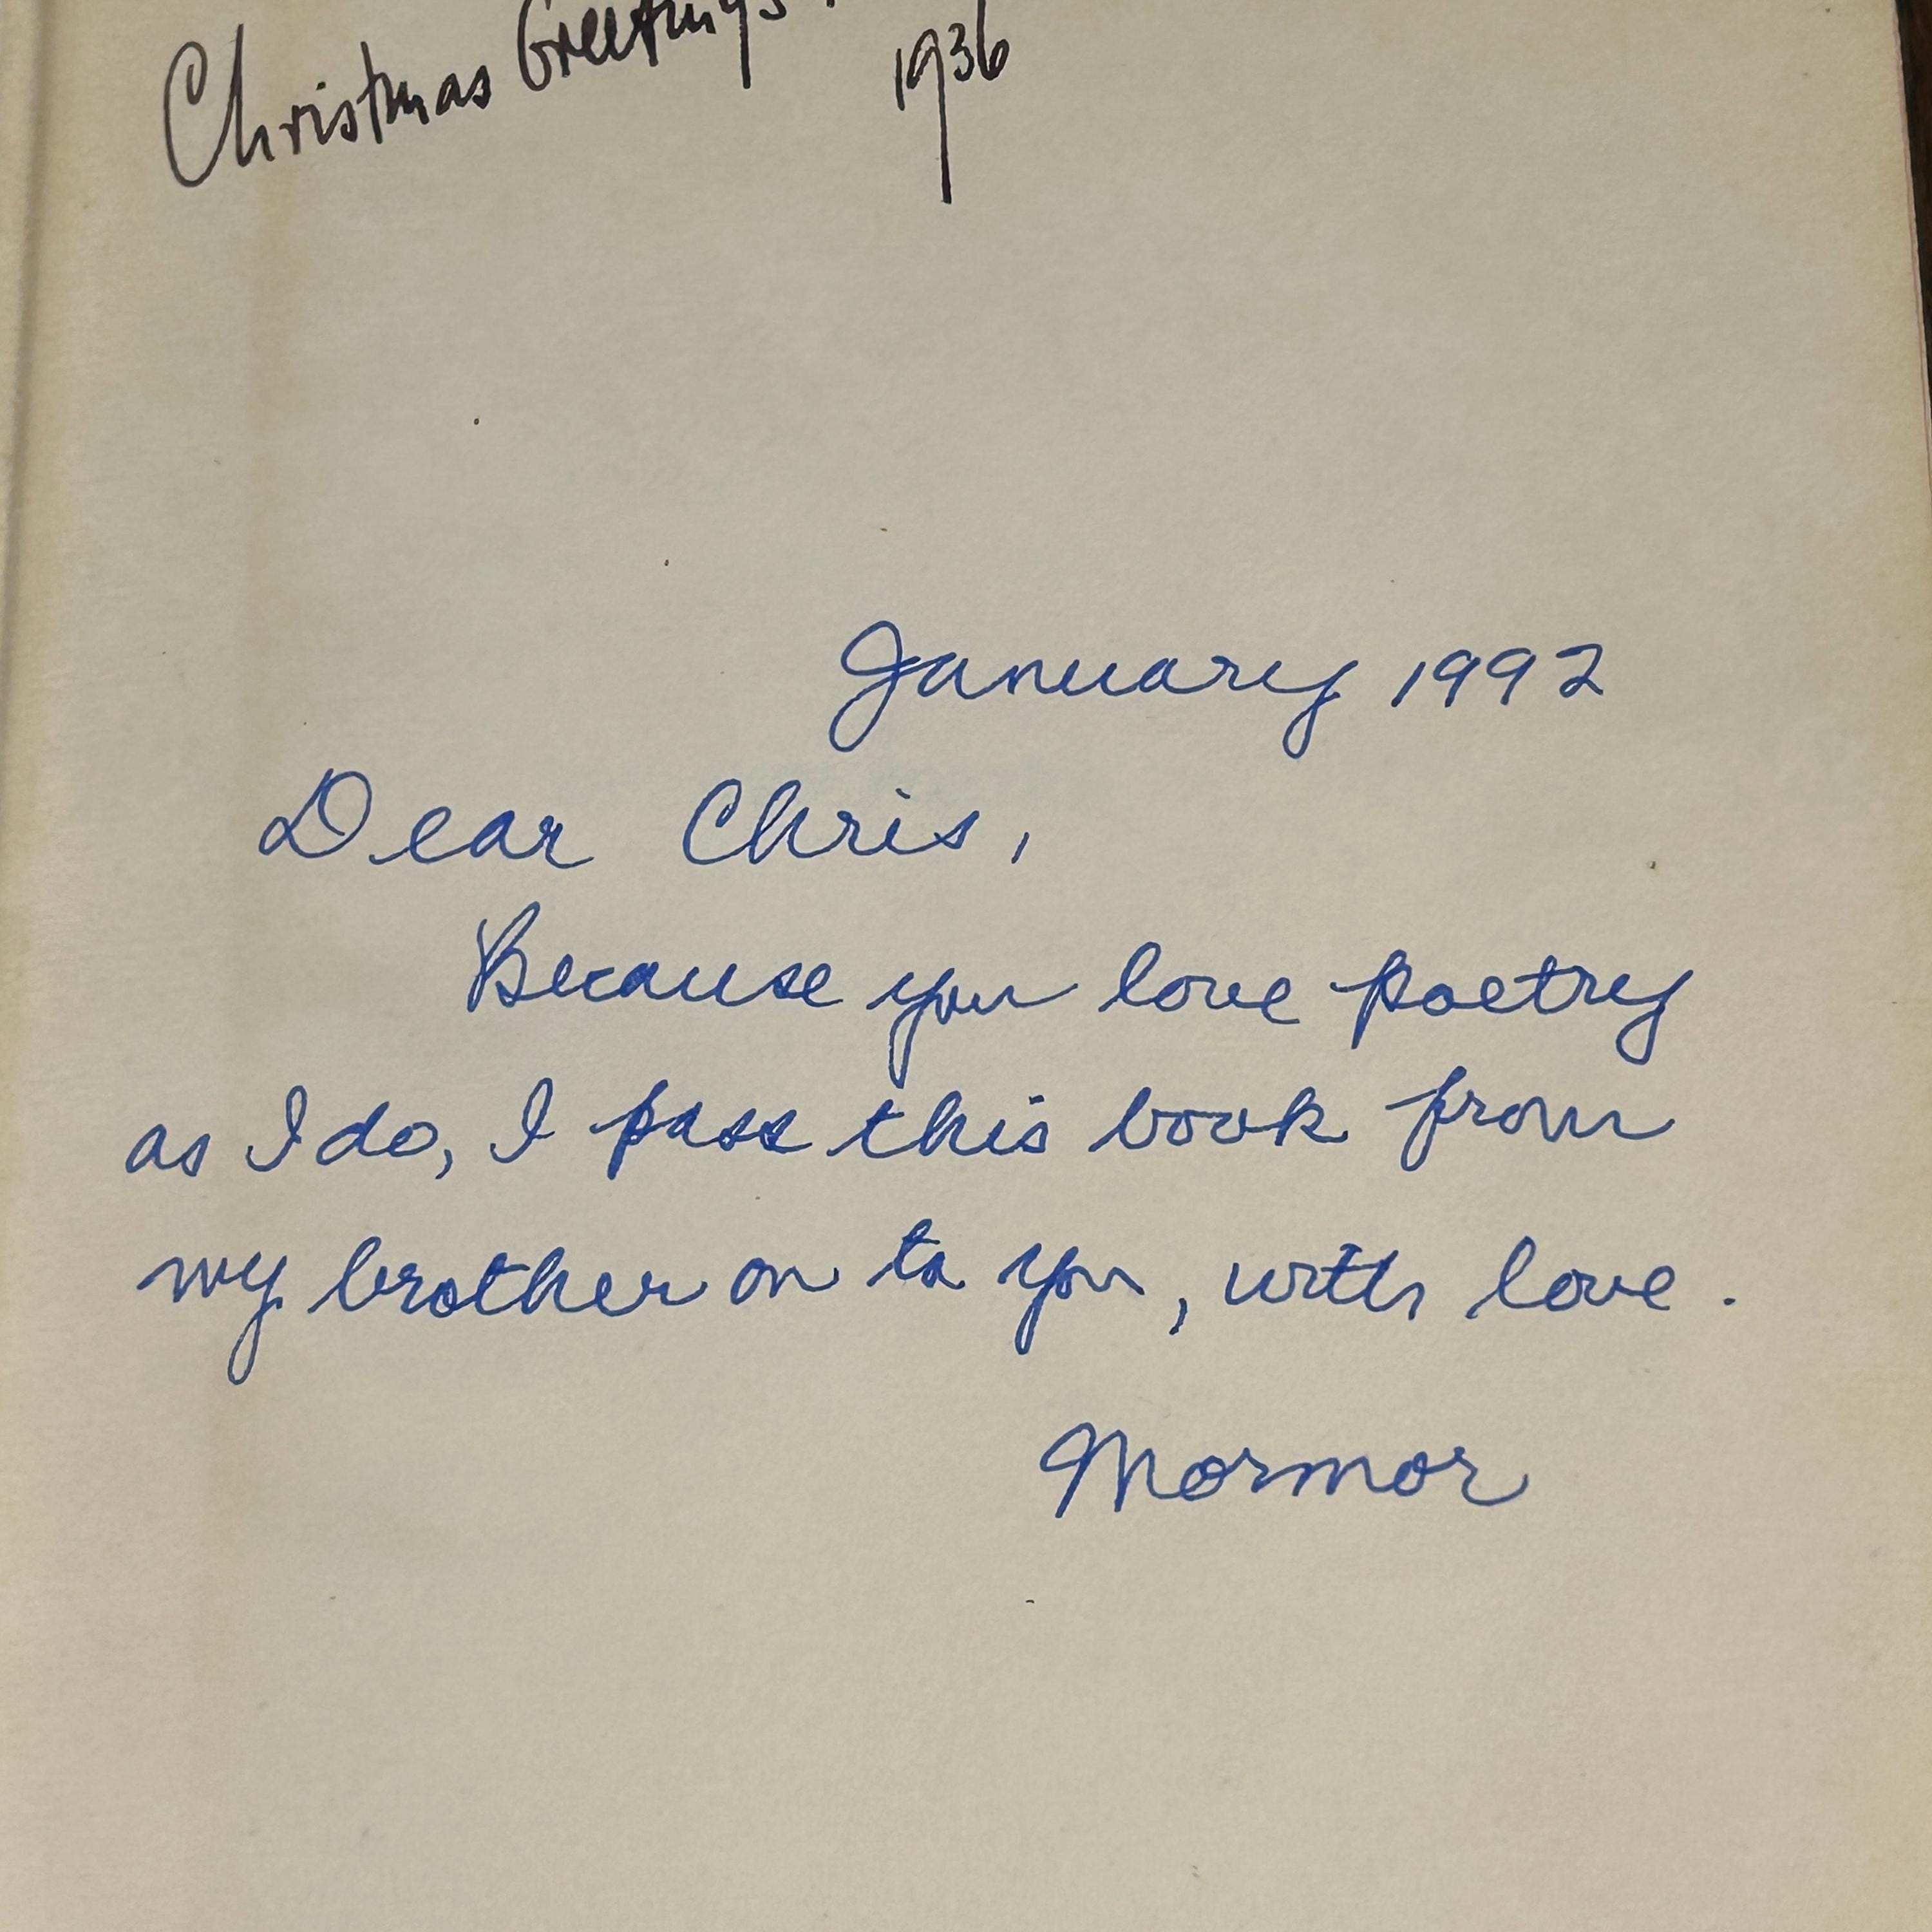 Christmas Greetings.
1936
January 1992
Dear Chris,
Because you love poetry
as I do, I pass this book from
my brother on to you, with love.
Mormor